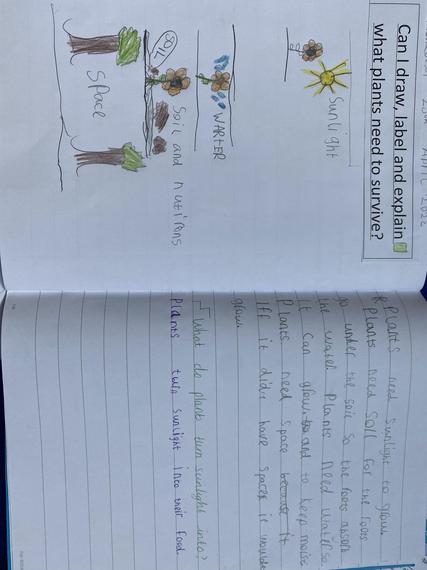 25th April 2022
Can I draw, label and explain
what plants need to survive?
Sunlight
WARTER
Soil and nutirens
SOIL
Space
Plants need sunlight to grow
Plants need soil for the roots
go under the soil so the roots absorb
the water. Plants need water so
it can grow and to keep moise
Plants need space because it
Iff it didn't have spaces it
grow.
What do plant turn sunlight into?
Plants turn sunlight into their food.